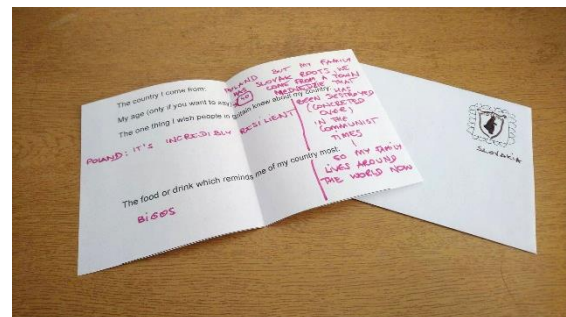 The country I come from:
POLAND BUT MY FAMILY
HAS SLOVAK ROOTS WE
COME FROM A TOWN
THAT
HAS
BEEN DESTROYED
(CONCRETED
OVER)
IN THE
COMMUNIST
TIMES
SO MY FAMILY
LIVES AROUND
THE WORLD NOW
My age (only if you want to say)
The one thing I wish people in Britain knew about my country:
POLAND: IT'S INCREDIBLY RESILIENT
The food or drink which reminds me of my country most:
BIGOS